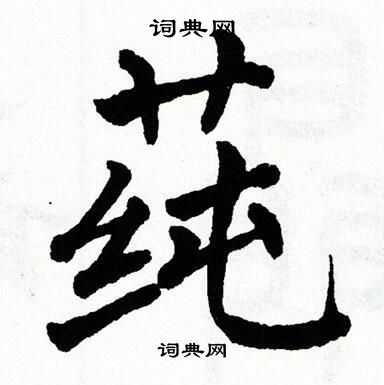 词典网
莼
词典网